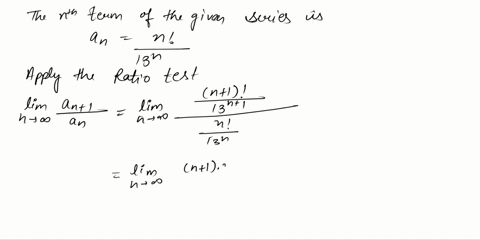 The nth term of the given series is
aₙ = n! / 13ⁿ
Apply the Ratio test
lim n→∞ aₙ₊₁ / aₙ = lim n→∞ ((n+1)! / 13ⁿ⁺¹) / (n! / 13ⁿ)
= lim n→∞ (n+1).